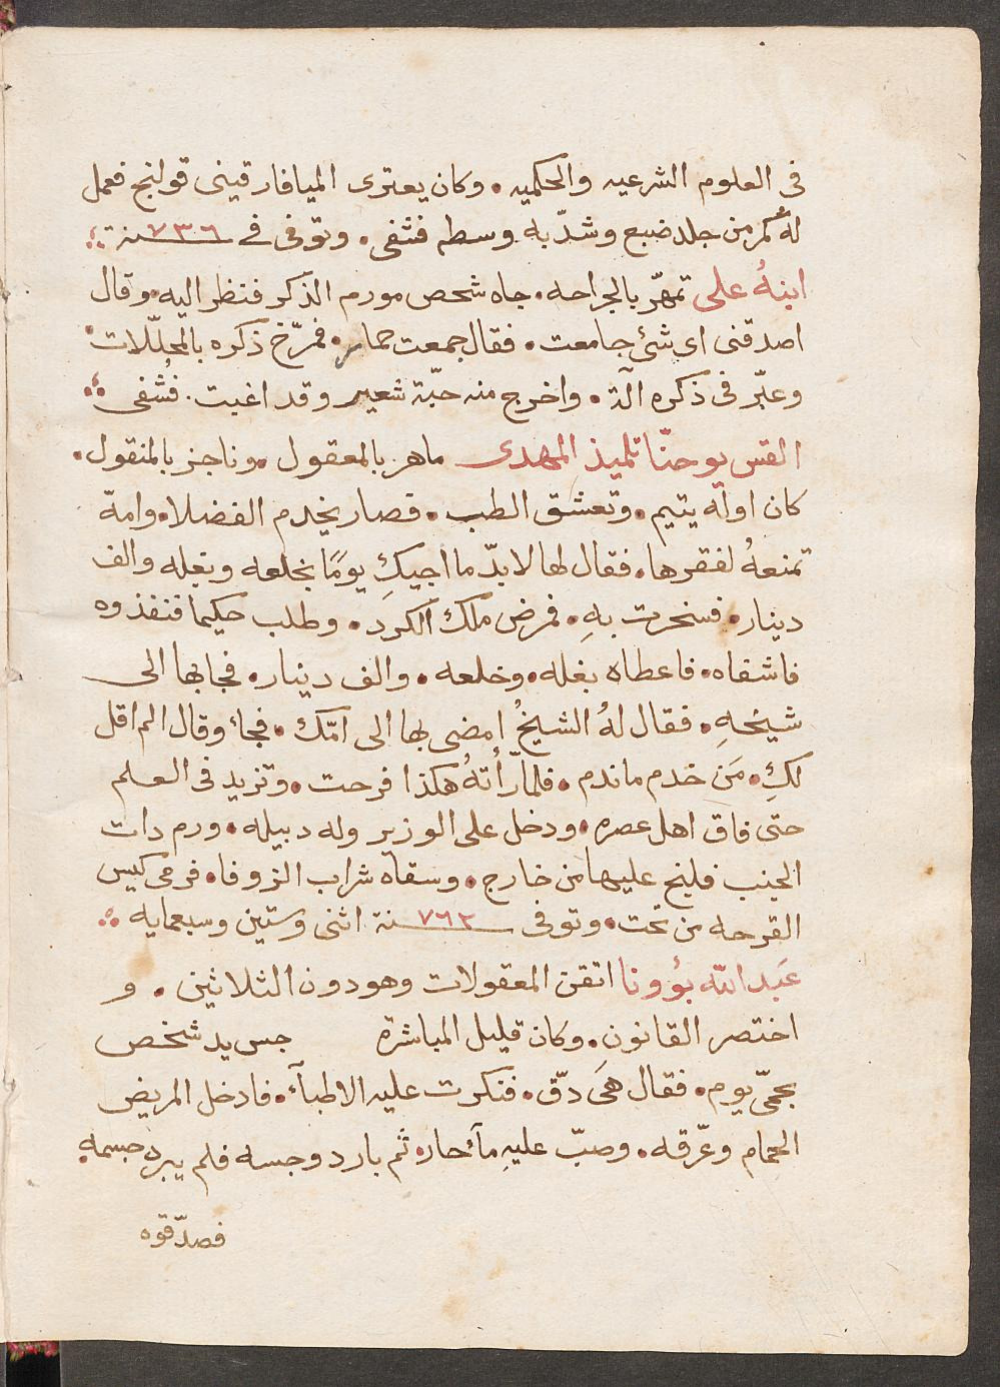 فى العلوم الشرعيه والحكميه . وكان يعترى الميافارقينى قولنج فعمل
لهُ كمر من جلد ضبع وشدّ به وسطه فشفى . وتوفى فے سنة ٧٣٦
ابنهُ على تمهّر بالجراحه . جاه شخص مورم الذكر فنظر اليه . وقال
اصدقنى اى شئ جامعت . فقال جمعت حمار . فمرّخ ذكره بالمحلّلات
وعبّر فى ذكره آلة . واخرج منه حبّة شعير وقد اغبت . فشُفى
القس يوحنّا تلميذ المهدى ماهر بالمعقول . وناجز بالمنقول .
كان اوله يتيم . وتعشق الطب . فصار يخدم الفضلا . وامهٌ
تمنعهُ لفقرها . فقال لها لابدّ ما اجيكِ يومًا بخلعه وبغله والف
دينار . فسخرت بهِ . فمرض ملك الكرد . وطلب حكيما فنفذوه
فاشفاه . فاعطاه بغله . وخلعه . والف دينار . فجابها الى
شيخهِ . فقال لهُ الشيخُ امضى بها الى امّك . فجاء وقال الم اقل
لكِ . مَن خدم ما ندم . فلما رأتهُ هكذا فرحت . وتزيد فى العلم
حتى فاق اهل عصره . ودخل على الوزير وله دبيله . ورم دات
الجنب فلبخ عليها من خارج . وسقاه شراب الزوفا . فرمى كيس
القرحه من تحت . وتوفى سنة ٧٦٢ اثنى وستين وسبعمايه
عَبد الله بؤونا اتقن المعقولات وهو دون الثلاثين . و
اختصر القانون . وكان قليل المباشرة جس يد شخص
بحمّى يوم . فقال هىَ دقّ . فنكرت عليه الاطبآء . فادخل المريض
الحمام وعرّقه . وصبّ عليهِ مآء حار . ثم بارد وجسه فلم يبرد جسمه .
فصدّقوه